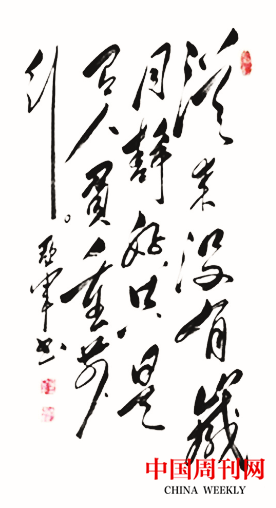 從来没有歲
月靜好只是
有人負重前
行。
亚军书
中国周刊网
CHINA WEEKLY